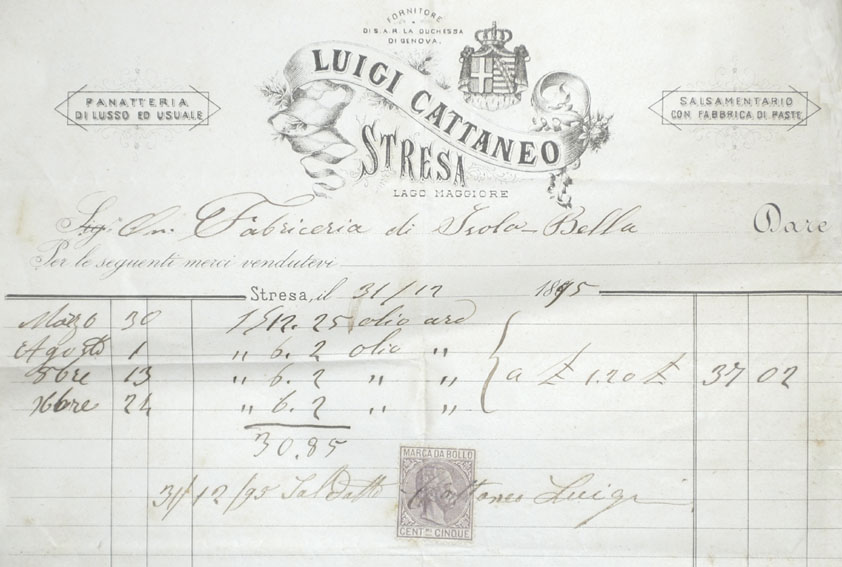 FORNITORE
DI S.A.R. LA DUCHESSA
DI GENOVA.
LUIGI CATTANEO
STRESA
LAGO MAGGIORE
PANATTERIA
DI LUSSO ED USUALE
SALSAMENTARIO
CON FABBRICA DI PASTE
Sig. On. Fabriceria di Isola-Bella Dare
Per le seguenti merci vendutevi
Stresa, il 31/12 1895
Marzo 30 12.25 olio ard
Agosto 1 " 6.2 olio "
8bre 13 " 6.2 " " a £ 1.20 £ 37 02
Xbre 24 " 6.2 " "
30.85
MARCA DA BOLLO
31/12/95 Saldato Cattaneo Luigi
CENT.MI CINQUE